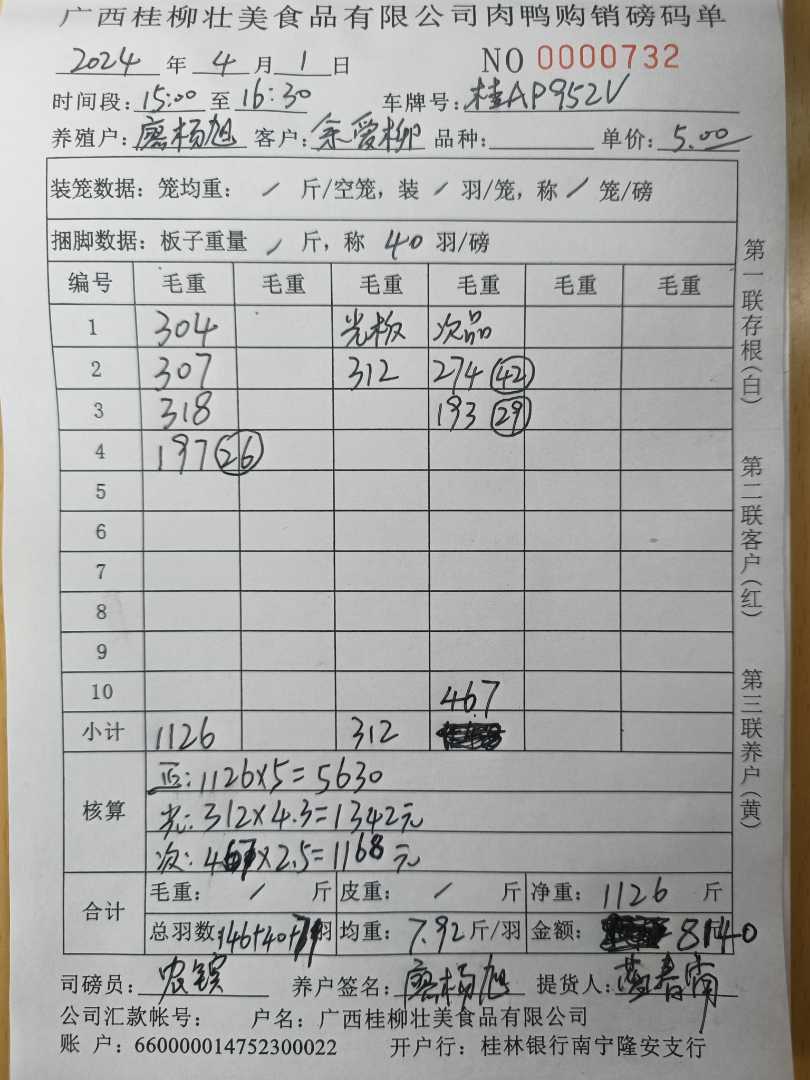 广西桂柳壮美食品有限公司肉鸭购销磅码单
2024 年 4 月 1 日 NO 0000732
时间段: 15:00 至 16:30 车牌号: 桂AP952V
养殖户: 廖杨旭 客户: 余爱柳 品种: 单价: 5.00
装笼数据: 笼均重: / 斤/空笼, 装 / 羽/笼, 称 / 笼/磅
捆脚数据: 板子重量 / 斤, 称 40 羽/磅
编号 毛重 毛重 毛重 毛重 毛重 毛重
1 304 光板 次品
2 307 312 274 (42)
3 318 193 (29)
4 197 (26)
5
6
7
8
9
10 467
小计 1126 312
核算
正: 1126×5=5630
光: 312×4.3=1342元
次: 467×2.5=1168元
合计
毛重: / 斤 皮重: / 斤 净重: 1126 斤
总羽数: 146+40+71 羽 均重: 7.92 斤/羽 金额: 8140
司磅员: 养户签名: 廖杨旭 提货人:
公司汇款帐号: 户名: 广西桂柳壮美食品有限公司
账 户: 660000014752300022 开户行: 桂林银行南宁隆安支行
第一联存根(白)
第二联客户(红)
第三联养户(黄)